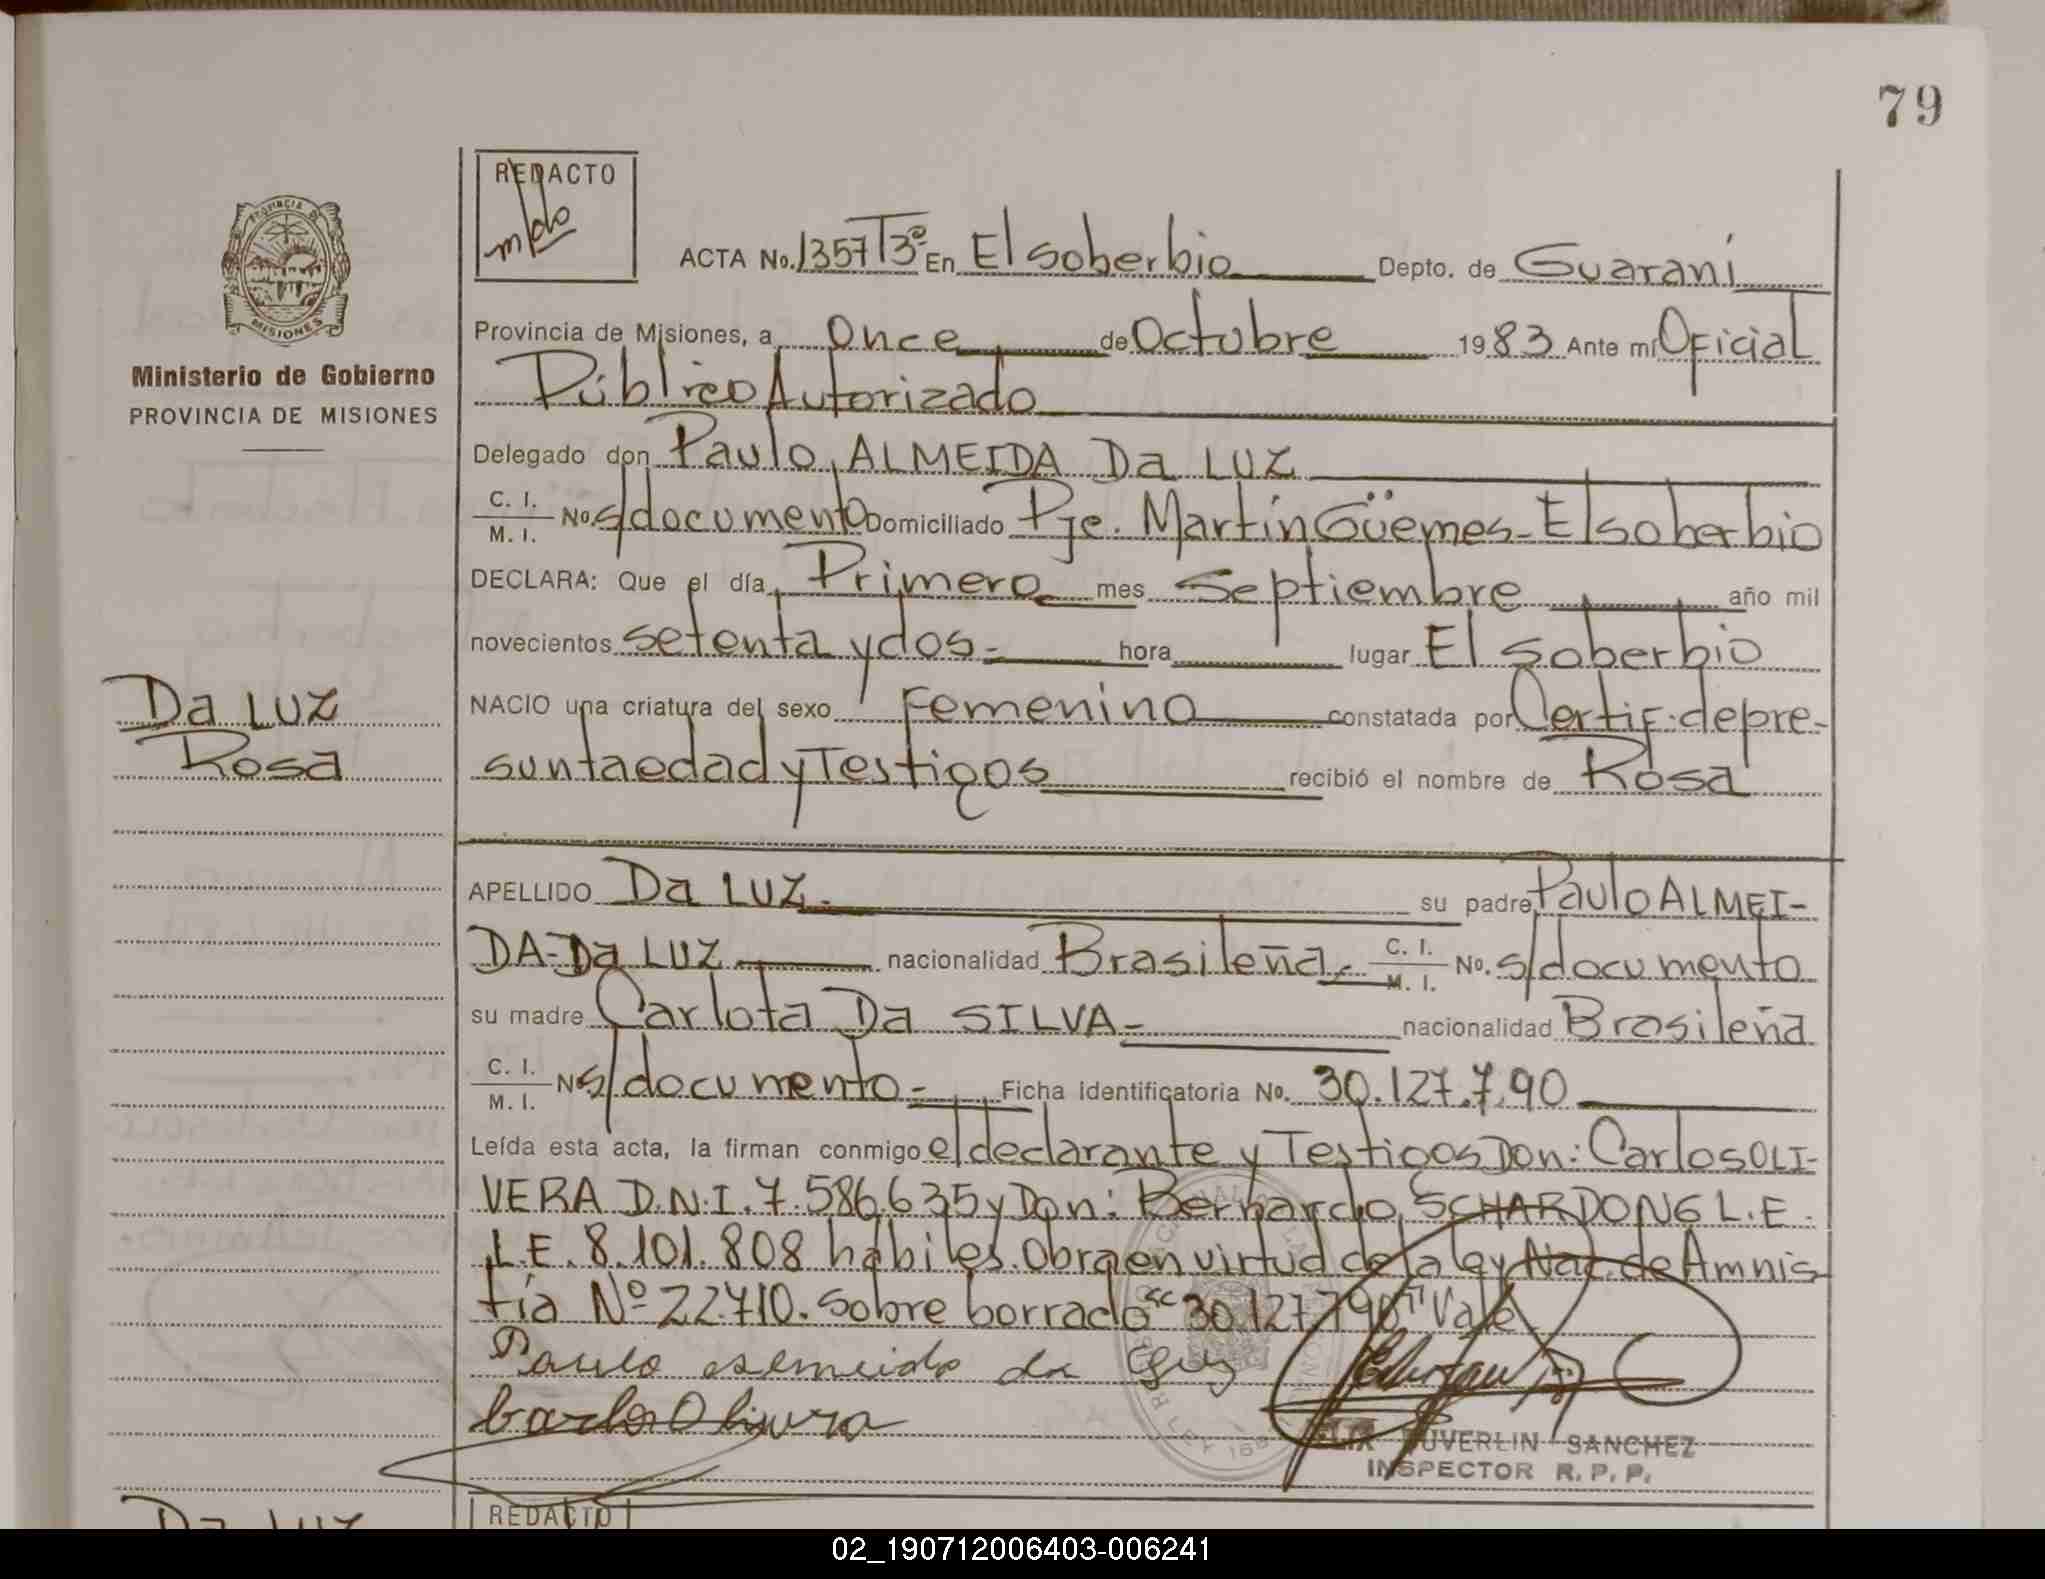 79
REDACTO
ACTA No. 1357 T3º En El Soberbio Depto. de Guaraní
Provincia de Misiones, a once de Octubre 1983 Ante mí Oficial
Público Autorizado
Ministerio de Gobierno
PROVINCIA DE MISIONES
Delegado don Paulo ALMEIDA Da LUZ
C. I. M. I. No. s/documento Domiciliado Pje. Martín Güemes - El soberbio
DECLARA: Que el día Primero mes septiembre año mil
novecientos setenta y dos - hora lugar El soberbio
Da LUZ
Rosa
NACIO una criatura del sexo Femenino constatada por Certif. de pre-
sunta edad y Testigos recibió el nombre de Rosa
APELLIDO Da LUZ - su padre Paulo ALMEI-
DA - Da LUZ nacionalidad Brasileña - C. I. M. I. No. s/documento
su madre Carlota Da SILVA - nacionalidad Brasileña
C. I. M. I. No s/documento - Ficha identificatoria No. 30.127.790
Leída esta acta, la firman conmigo el declarante y Testigos Don: Carlos OLI-
VERA D.N.I. 7.586.635 y Don: Bernardo SCHARDONG L.E.
L.E. 8.101.808 hábiles. Obra en virtud de la ley Nac. de Amnis
tía Nº 22.710. sobre borrado "30.127.790" Vale
Paulo da Luz
Carlos Olivera
FELIX EUVERLIN SANCHEZ
INSPECTOR R. P. P.
REDACTO
Da LUZ
02_190712006403-006241